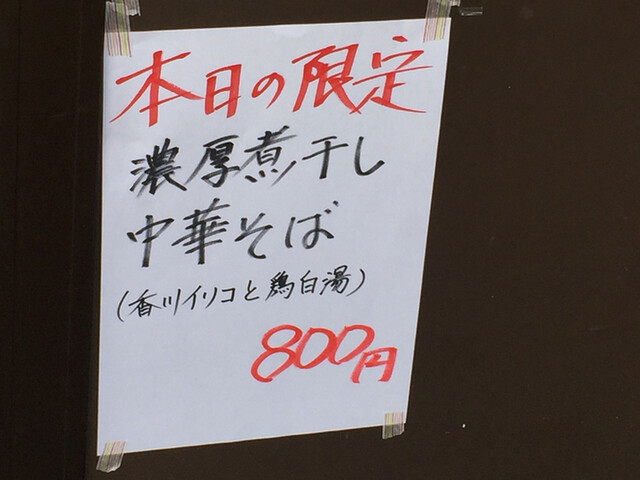 本日の限定
濃厚煮干し
中華そば
(香川イリコと鶏白湯)
800円